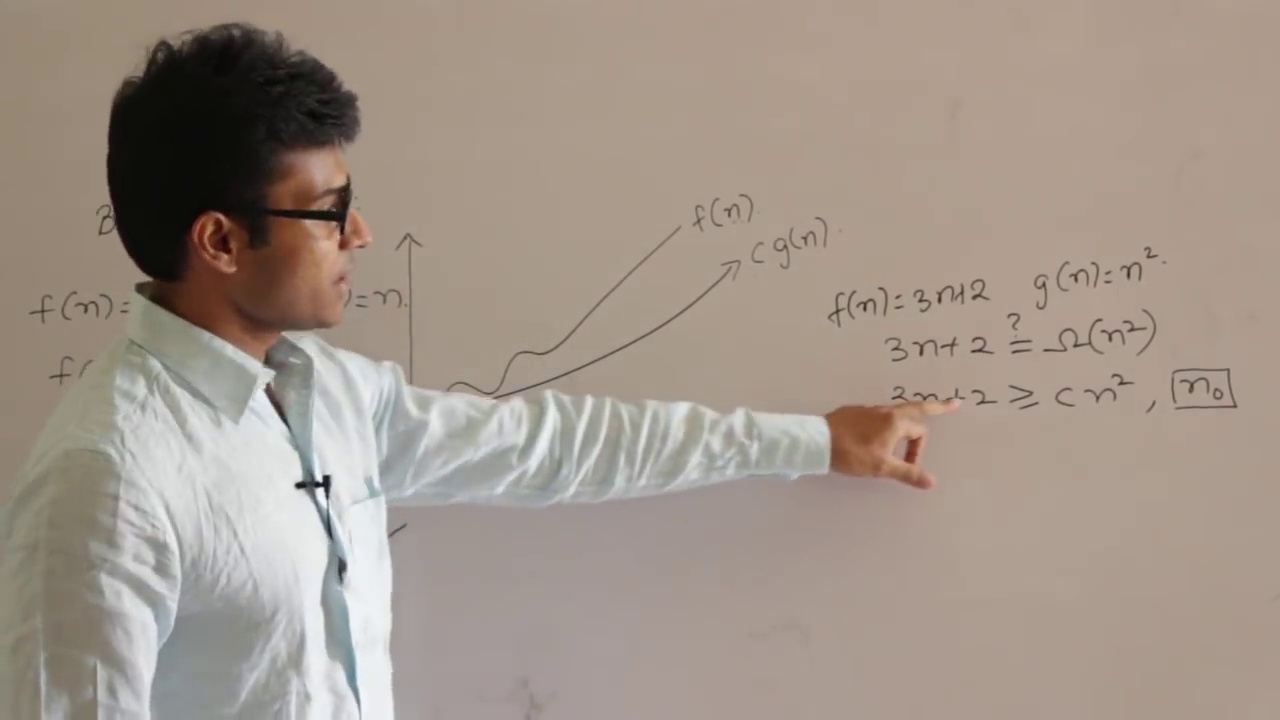 B
f(n)=
)=n.
f(
f(n)
cg(n).
f(n)=3n+2 g(n)=n².
3n+2 ≟ Ω(n²)
3n+2 ≥ cn², n₀